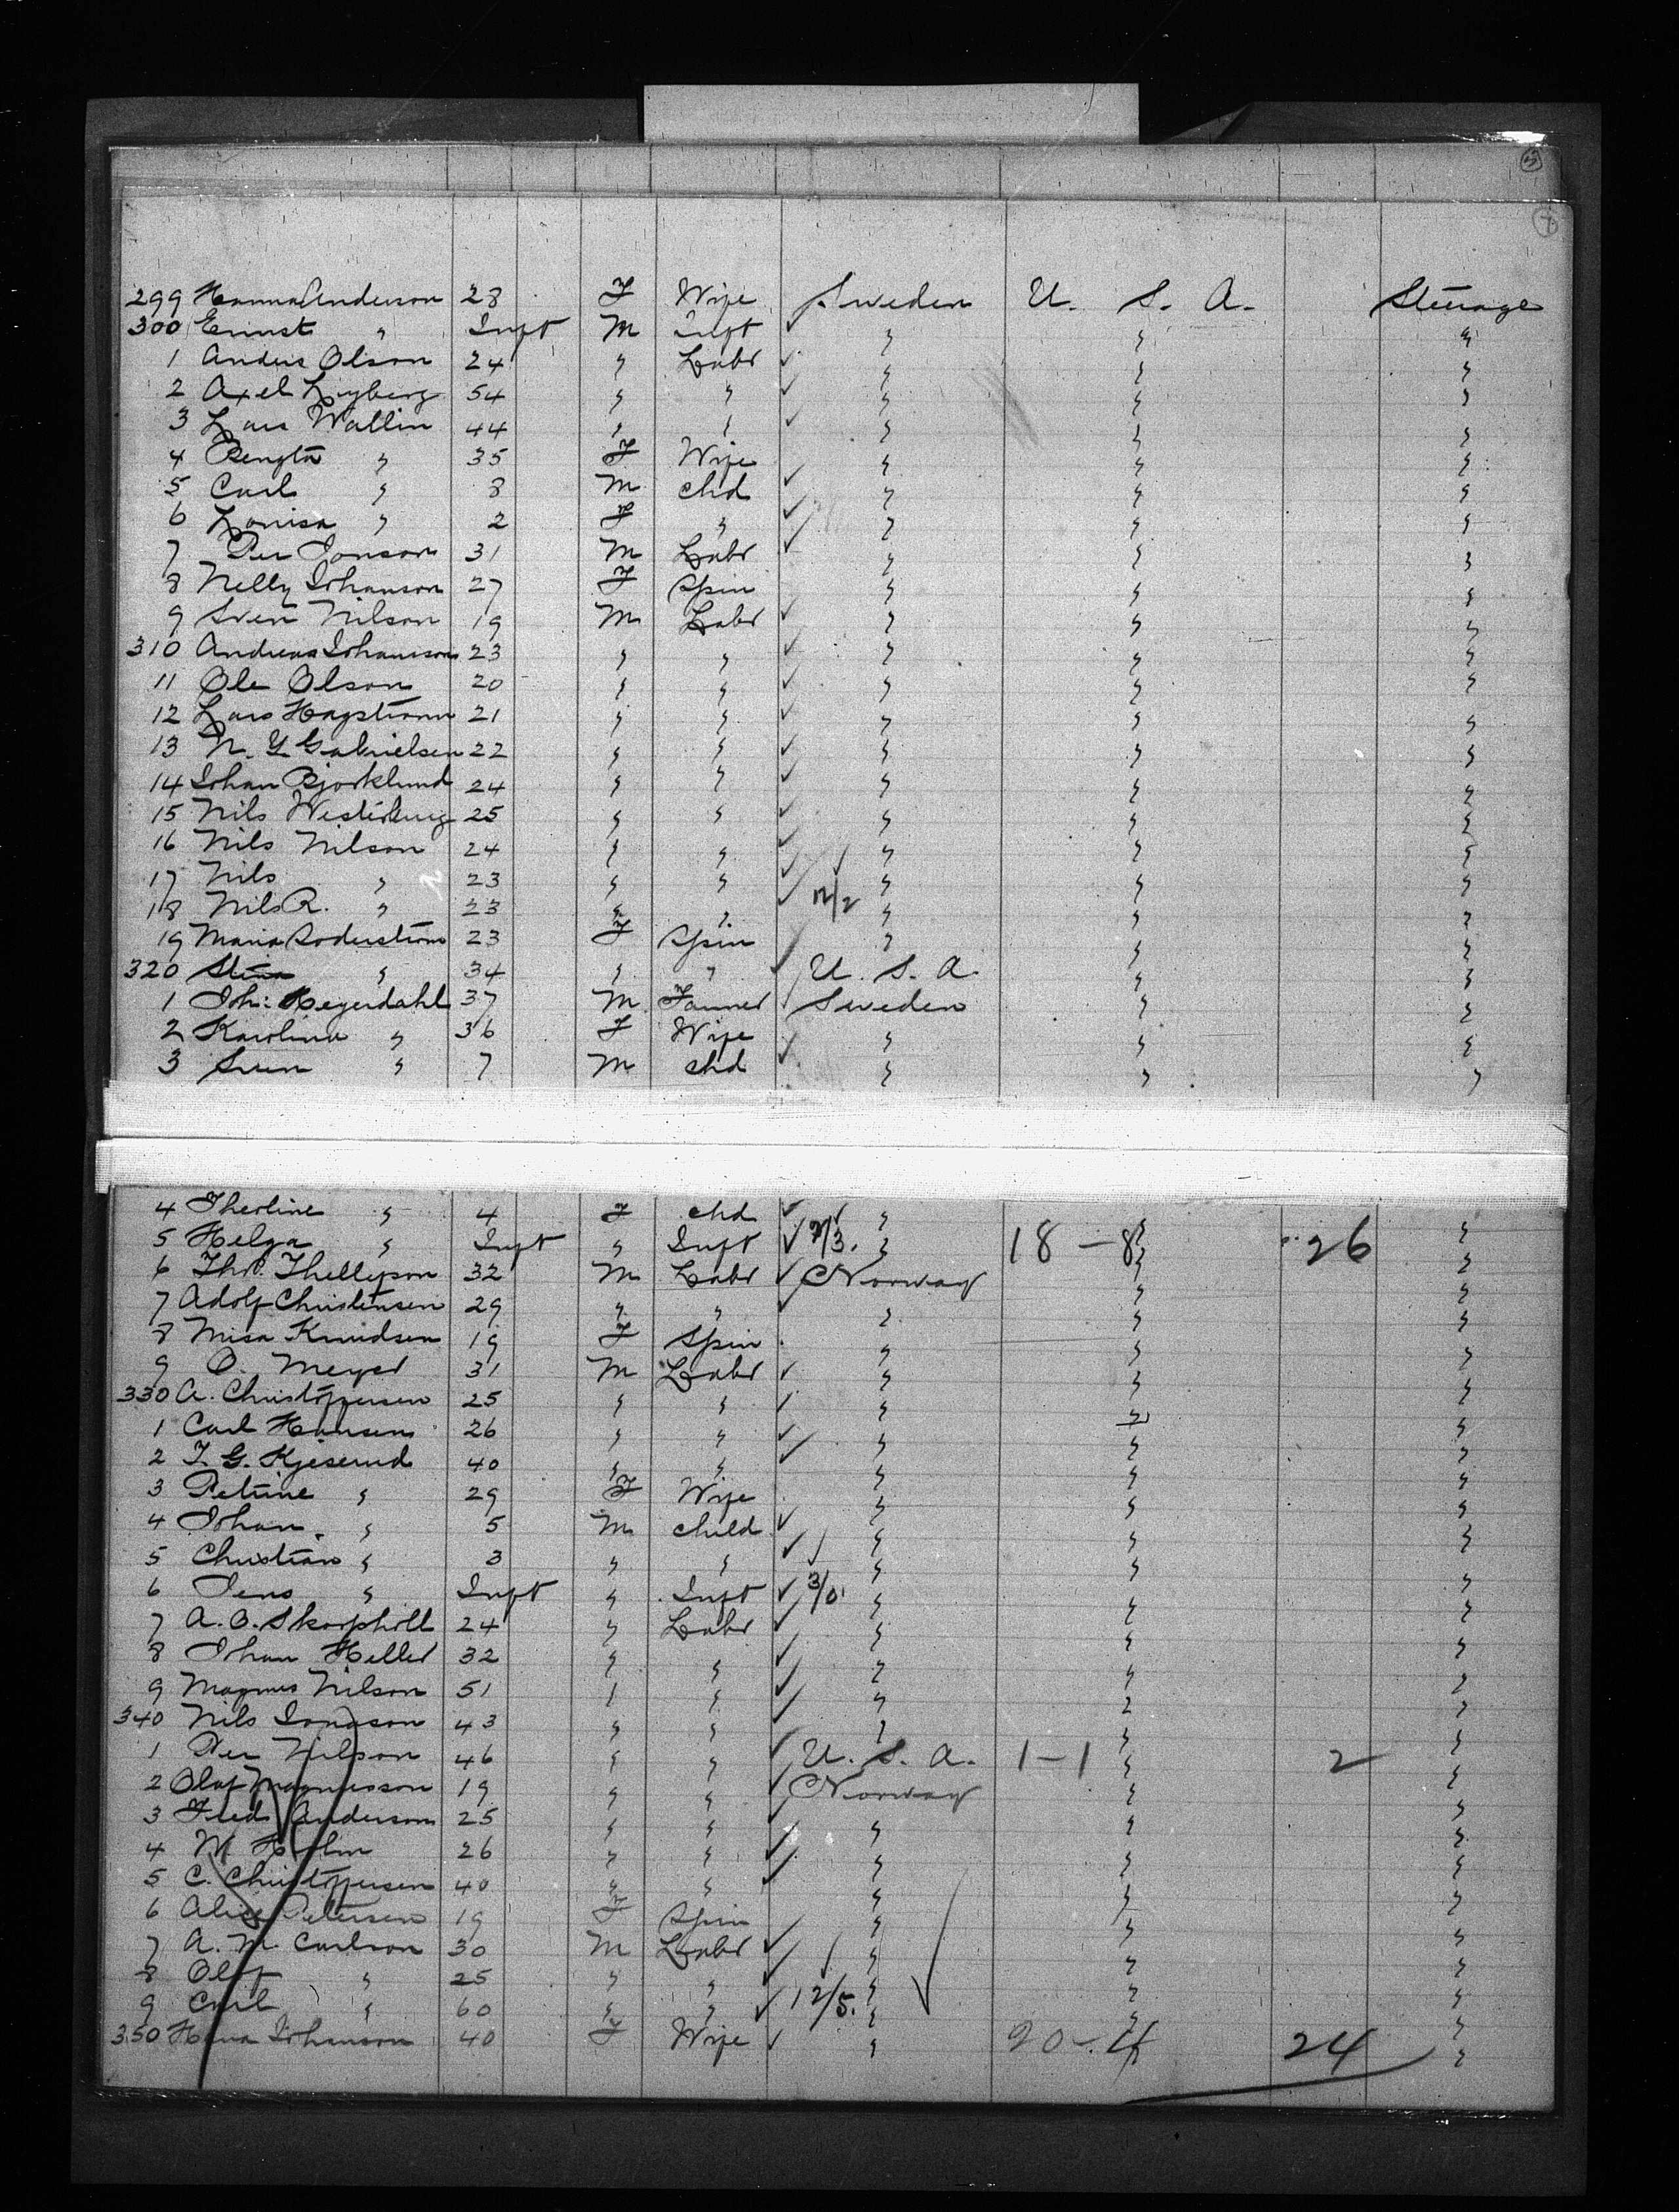 299 Hanna Anderson 28 F Wife Sweden U. S. A. Steerage
300 Ernst " Inft M Inft " " "
1 Anders Olson 24 " Labr " " "
2 Axel Lyberg 54 " " " " "
3 Lars Wallin 44 " " " " "
4 Bengta " 35 F Wife " " "
5 Carl " 8 M chd " " "
6 Lovisa " 2 F " " " "
7 Per Jonson 31 M Labr " " "
8 Nelly Johanson 27 F Spin " " "
9 Sven Nilson 19 M Labr " " "
310 Andreas Johansson 23 " " " " "
11 Ole Olson 20 " " " " "
12 Lars Hagstrom 21 " " " " "
13 N. Y Gabrielsen 22 " " " " "
14 Johan Bjorklund 24 " " " " "
15 Nils Westerburg 25 " " " " "
16 Nils Nilson 24 " " " " "
17 Nils " 23 " " " " "
18 Nils R. " 23 " " 12/2 " " "
19 Maria Soderstrom 23 F Spin " " "
320 Stina " 34 " " U. S. A. " "
1 Joh: Heyerdahl 37 M Farmer Sweden " "
2 Karolina " 36 F Wife " " "
3 Sven " 7 M chd " " "
4 Theoline " 4 F chd " " "
5 Helga " Inft " Inft 7/3. " 18-8 " 26 "
6 Thr. Thellefson 32 M Labr Norway " "
7 Adolf Christensen 29 " " " " "
8 Misa Knudsen 19 F Spin " " "
9 O. Meyer 31 M Labr " " "
330 A. Christoffersen 25 " " " " "
1 Carl Hansen 26 " " " " "
2 T. G. Kjeserud 40 " " " " "
3 Petrine " 29 F Wife " " "
4 Johan " 5 M child " " "
5 Christian " 3 " " " " "
6 Jens " Inft " Inft 3/0 " " "
7 A. O. Skorphill 24 " Labr " " "
8 Johan Heller 32 " " " " "
9 Magnus Nilson 51 " " " " "
340 Nils Jonason 43 " " " " "
1 Per Nilson 46 " " U. S. A. 1-1 " 2 "
2 Olof Magnusson 19 " " Norway " "
3 Fred Anderson 25 " " " " "
4 W Holm 26 " " " " "
5 C. Christoffersen 40 " " " " "
6 Alice Petersen 19 F Spin " " "
7 A. M. Carlson 30 M Labr " " "
8 Olof " 25 " " " " "
9 Carl " 60 " " 12/5. " " "
350 Hana Johanson 40 F Wife " 20-4 " 24 "